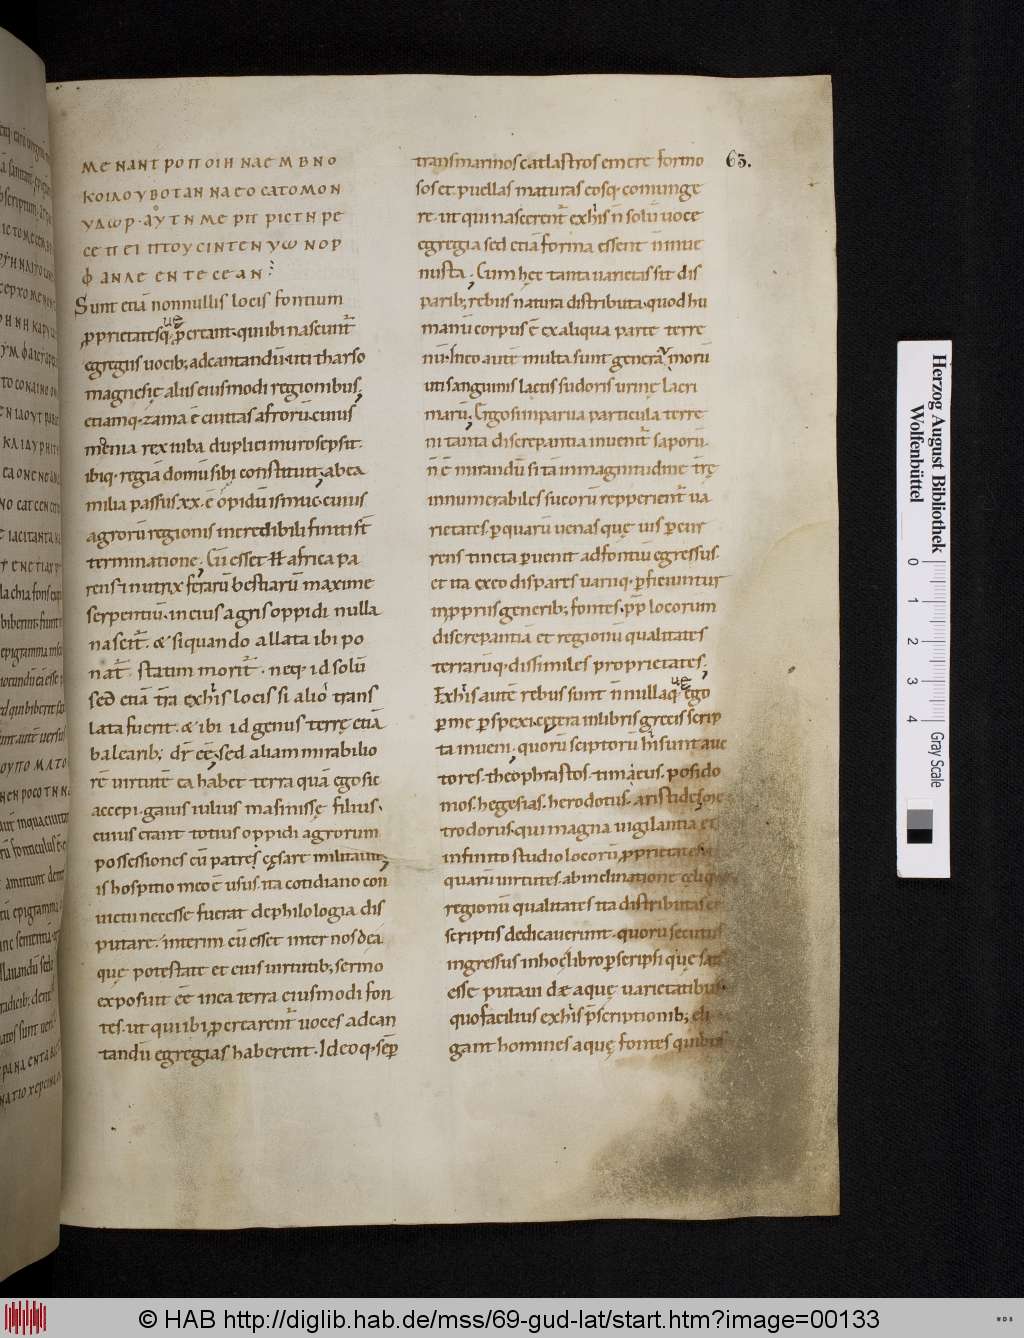 ΜΕΝΑΝΤΡΟΠΟΙΗΝΑΕΜΒΝΟ
ΚΟΙΛΟΥΒΟΤΑΝΝΑΕΟΣΑΤΟΜΟΝ
ΥΔΩΡ·ΑΥΤΗΜΕΡΙΠΡΙΕΤΗΡΕ
ΣΕΠΕΙΠΤΟΥΣΙΝΤΕΝΥΩΝΟΡ
ΦΑΝΛΕΕΝΤΕΣΕΑΝ
Sunt etiā nonnullis locis fontium
p̱prietates q; p̄creant·qui ibi nascunt̄
egregiis uocib; ad cantandū·uti tharso
magnesię aliis eiusmodi regionibus;
etiamq· zama ē ciuitas afrorū·cuius
mœnia rex iuba duplici muro sępsit·
ibiq· regiā domū sibi constituit; ab ea
milia passus xx·ē oṕidū ismuc·cuius
agrorū regionis incredibili finiti st̄
terminatione; Cū esset H̄ africa pa
rens·i nutrix ferarū bestiarū maxime
serpentiū·in eius agris oppidi nulla
nascit̄·& si quando allata ibi po
nat̄· statim morit̄· neq· id solū
sed etiā tr̄a ex his locis si alio trans
lata fuerit·& ibi id genus terrę etiā
balearib; dr̄ eē; sed aliam mirabilio
rē uirtutē ea habet terra quā ego sic
accepi·gaius iulius masinissę filius·
cuius erant totius oppidi agrorum
possessiones cū patre s̀ cęsare militauit;
is hospitio meo ē usus·ita cotidiano con
uictu necesse fuerat de philologia dis
putare·interim cū esset inter nos de a
que potestate et eius uirtutib; sermo
exposuit eē in ea terra eiusmodi fon
tes·ut qui ibi ꝓcrearent̄ uoces ad can
tandū egregias haberent·Ideoq· sep̄
63.
transmarinos catlastros emere formo
sos et puellas maturas eosq· coniunge
re·ut qui nascerent̄ ex his ñ solū uoce
egregia sed etiā forma essent ñ inue
nusta; Cum hęc tanta uarietas sit dis
parib; rebus natura distributa·quod hu
manū corpus ē ex aliqua parte terre
nū·In eo autē multa sunt genera ymorū
uti sanguinis lactis sudoris urinę lacri
marū; Ergo si in parua particula terre
ni tanta discrepantia inuenit̄ saporū·
ñ ē mirandū si tā in magnitudine tr̄ę
innumerabiles sucorū repperient̄ ua
rietates·ꝑ quarū uenas quę uis ꝑcur
rens tincta ꝑuenit ad fontiū egressus·
et ita ex eo dispares uariiq· ꝑficiuntur
in ꝓpriis generib; fontes·ꝓp locorum
discrepantiā et regionū qualitates
terrarūq· dissimiles proprietates;
Ex his autē rebus sunt ñ nulla quę ego
ꝑ me ꝑspexi·cętera in libris grecis scrip
ta inueni; quorū sciptorū hi sunt auc
tores·theophrastos·timaeus·posido
mos·hegesias·herodotus·aristides·me
trodorus·qui magna uigilantia et
infinito studio locorū ꝓprietates
quarū uirtutes·ab inclinatione cęli
regionū qualitates ita distributas
scriptis dedicauerunt·quorū secutus
ingressus in hoc libro ꝑscripsi quę satis
esse putaui de aquę uarietatibus·
quo facilius ex his p̄scriptionib; eli
gant homines aquę fontes quibus
Herzog August Bibliothek
Wolfenbüttel
0 1 2 3 4
Gray Scale
© HAB http://diglib.hab.de/mss/69-gud-lat/start.htm?image=00133